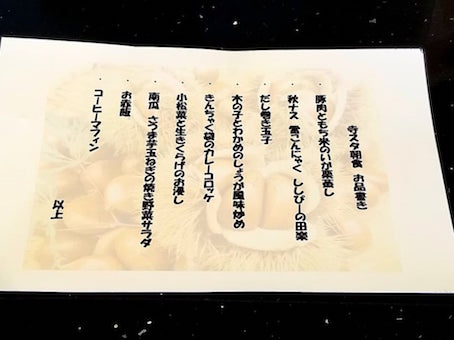 寺スタ朝食 お品書き
・豚肉ともち米のいが栗蒸し
・秋ナス 雪こんにゃく ししぴーの田楽
・だし巻き玉子
・木の子とわかめのしょうが風味炒め
・きんちゃく袋のカレーコロッケ
・小松菜と生きくらげのお浸し
・南瓜 さつま芋玉ねぎの焼き野菜サラダ
・お赤飯
・コーヒーマフィン
以上